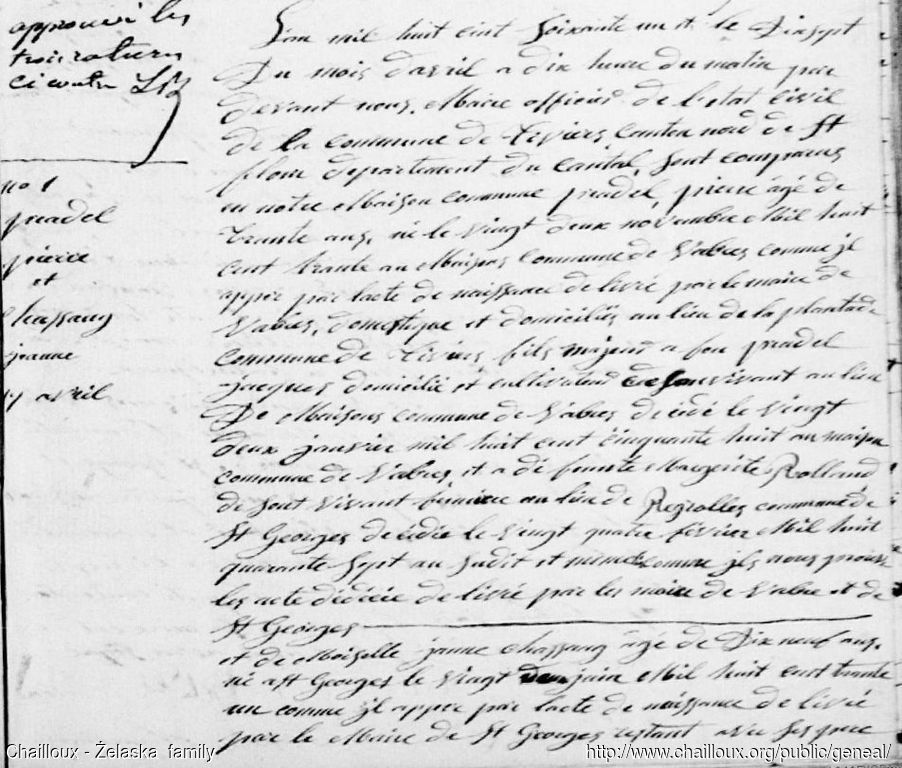 approuvé les
trois ratures
ci contre
no 1
pradel
pierre
et
Chassang
jeanne
17 avril
L'an mil huit cent soixante un et le Dixsept
Du mois d'avril a dix heure du matin par
devant nous, Maire officier de l'etat Civil
de la commune de Tiviers Canton nord de St
flour departement du Cantal, sont comparus
en notre Maison commune pradel, pierre âgé de
trante ans, né le vingt deux novembre Mil huit
cent trante au Maisons Commune de Vabres comme jl
appir par lacte de naissance de livré par le maire de
Vabres, domestique et domiciliés au lieu de la plantade
commune de Tiviers fils majeur a feu pradel
jacques domicilié et cultivateur de son vivant au lieu
De Maisons commune de Vabres décidé le vingt
deux janvier mil huit cent cinquante huit au maison
commune de Vabres, et a dé funte Margerite Rolland
de sont vivant femme au lieu de Regiolles commune de
St Georges décidée le vingt quatre février Mil huit
quarante sept au sudit et comme jls nous
les acte décée de livré par les maire de Vabre et de
St Georges
et de Moiselle janne Chassang âgé de Dix neuf ans,
né a St Georges le vingt juin Mil huit cent trante
un comme jl appir par lacte de naissance de livré
par le Maire de St Georges restant avec ses pere
Chailloux - Żelaska family
http://www.chailloux.org/public/geneal/